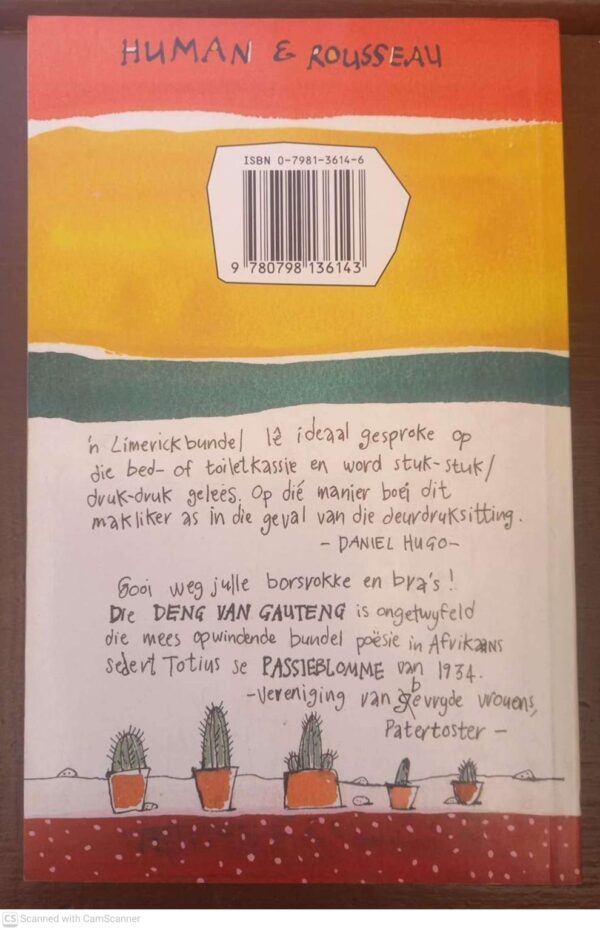 HUMAN & ROUSSEAU
ISBN 0-7981-3614-6
9 780798 136143
'n Limerickbundel lê ideaal gesproke op
die bed- of toiletkassie en word stuk-stuk/
druk-druk gelees. Op dié manier boei dit
makliker as in die geval van die deurdruksitting.
- DANIEL HUGO -
Gooi weg julle borsrokke en bra's!
Die DENG VAN GAUTENG is ongetwyfeld
die mees opwindende bundel poësie in Afrikaans
sedert Totius se PASSIEBLOMME van 1934.
- Vereniging van Bevryde Vrouens,
Patertoster -
CS Scanned with CamScanner